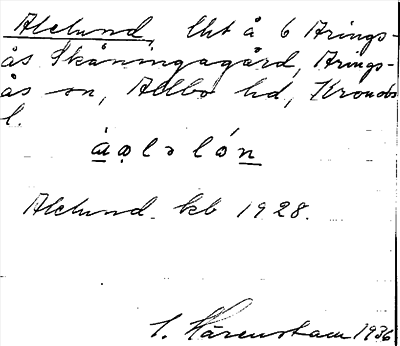 Alelund, lht å 6 Arings-
ås Skåningagård, Arings-
ås sn, Allbo hd, Kronobs
l.
Alelund. kb 1928.
Härenstam 1936